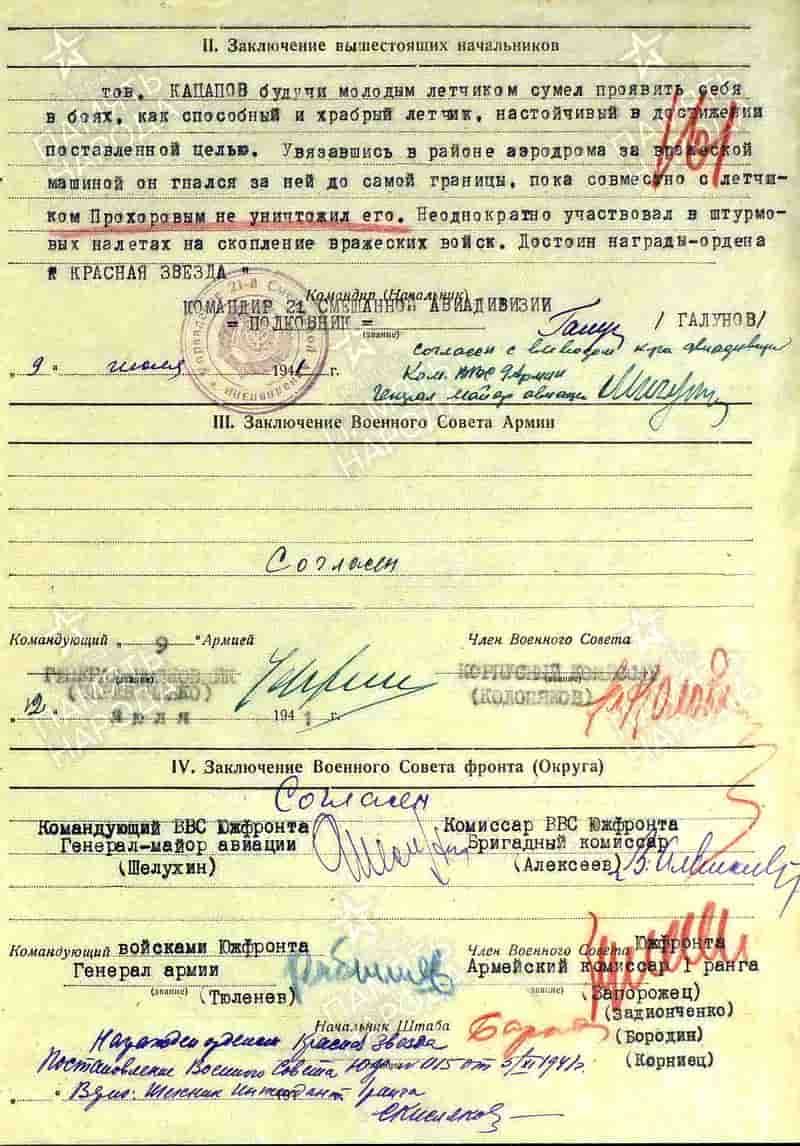 II. Заключение вышестоящих начальников
тов. КАЦАПОВ будучи молодым летчиком сумел проявить себя
в боях, как способный и храбрый летчик, настойчивый в достижении
поставленной целью. Увязавшись в районе аэродрома за вражеской
машиной он гнался за ней до самой границы, пока совместно с летчи-
ком Прохоровым не уничтожил его. Неоднократно участвовал в штурмо-
вых налетах на скопление вражеских войск. Достоин награды-ордена
" КРАСНАЯ ЗВЕЗДА "
Командир (Начальник)
КОМАНДИР 21 СМЕШАННОЙ АВИАДИВИЗИИ
= ПОЛКОВНИК =
(звание)
/ ГАЛУНОВ/
Согласен с выводом к-ра авиадивизии
„ 9 " июля 1941 г.
Ком. ВВС 9 Армии
Генерал майор авиации
III. Заключение Военного Совета Армии
Согласен
Командующий „ 9 " Армией
Член Военного Совета
ГЕНЕРАЛ
КОРПУСНОЙ КОМИССАР
(звание)
(звание)
(КОЛОБЯКОВ)
„ 12 " Июля 1941 г.
IV. Заключение Военного Совета фронта (Округа)
Согласен
Командующий ВВС Южфронта
Комиссар ВВС Южфронта
Генерал-майор авиации
Бригадный комиссар
(Шелухин)
(Алексеев)
Командующий войсками Южфронта
Член Военного Совета Южфронта
Генерал армии
Армейский комиссар 1 ранга
(звание)
(Тюленев)
(звание)
(Запорожец)
(Задионченко)
Начальник Штаба
(Бородин)
Награжден орденом Красная Звезда
(Корниец)
Постановление Военного Совета Юфр. № 015 от 5/XI 1941г.
Техник Интендант 1 ранга